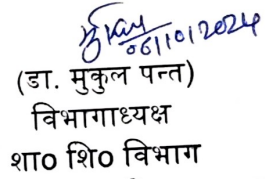 06/10/2024
(डा. मुकुल पन्त)
विभागाध्यक्ष
शा0 शि0 विभाग